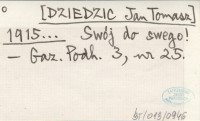 [DZIEDZIC Jan Tomasz]
1915... Swój do swego!
— Gaz. Podh. 3, nr 25.